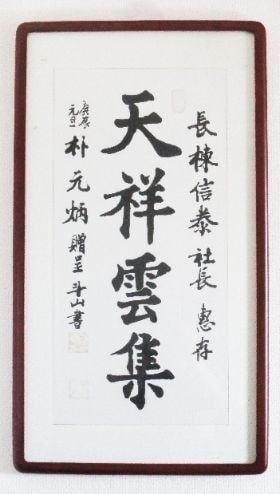 長棟信泰社長 惠存
天祥雲集
庚辰元旦 朴元炳 贈呈 斗山書